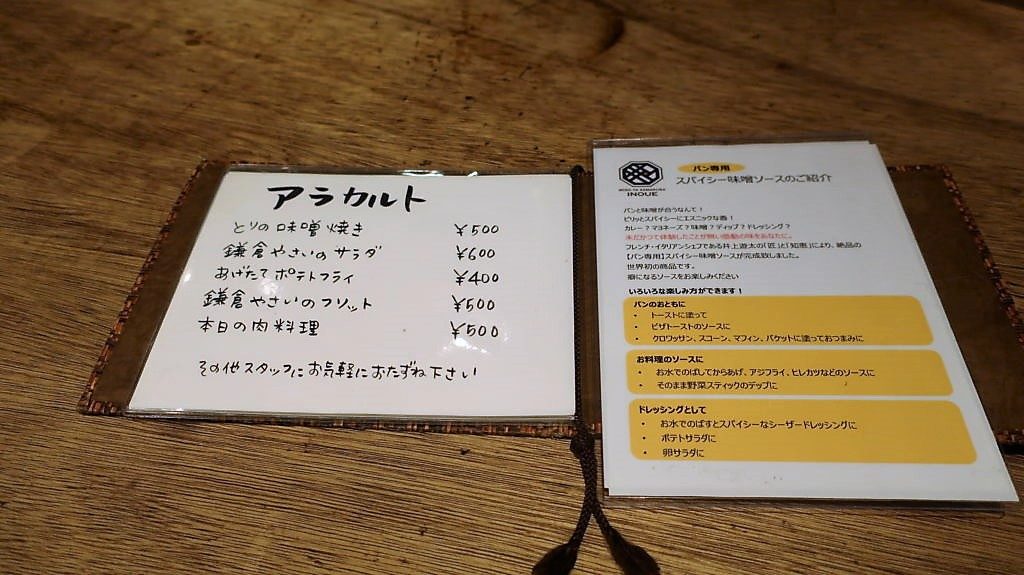 アラカルト
とりの味噌焼き ¥500
鎌倉やさいのサラダ ¥600
あげたてポテトフライ ¥400
鎌倉やさいのフリット ¥500
本日の肉料理 ¥500
その他スタッフにお気軽におたずね下さい
INOUE
パン専用
スパイシー味噌ソースのご紹介
パンと味噌が合うなんて！
ピリッとスパイシーにエスニックな香！
カレー？マヨネーズ？味噌？ディップ？ドレッシング？
未だかつて体験したことが無い感動の味をあなたに。
フレンチ・イタリアンシェフである井上遊太の「匠」と「知恵」により、絶品の
【パン専用】スパイシー味噌ソースが完成致しました。
世界初の商品です。
癖になるソースをお楽しみください
いろいろな楽しみ方ができます！
パンのおともに
・ トーストに塗って
・ ピザトーストのソースに
・ クロワッサン、スコーン、マフィン、バケットに塗っておつまみに
お料理のソースに
・ お水でのばしてからあげ、アジフライ、ヒレカツなどのソースに
・ そのまま野菜スティックのディップに
ドレッシングとして
・ お水でのばすとスパイシーなシーザードレッシングに
・ ポテトサラダに
・ 卵サラダに